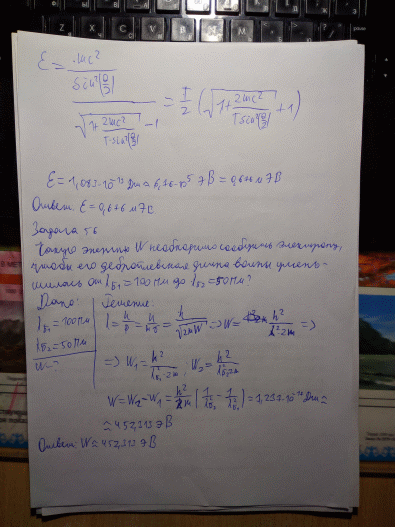 ε = mc² / sin²(θ/2) / √(1+2mc²/(T sin²(θ/2))) −1 = T/2 (√(1+2mc²/(T sin²(θ/2))) + 1)
ε = 1,083·10⁻¹³ Дж ≈ 6,76·10⁵ эВ = 0,676 МэВ
Ответ: ε = 0,676 МэВ
Задача 56
Какую энергию W необходимо сообщить электрону,
чтобы его дебройлевская длина волны умень-
шилась от λБ₁ = 100 пм до λБ₂ = 50 пм?
Дано: Решение:
λБ₁ = 100 пм
λБ₂ = 50 пм
W = ?
λ = h/p = h/p = h/√2mW => W = h²/λ²·2m =>
=> W₁ = h²/λ²Б₁·2m , W₂ = h²/λ²Б₂2m
W = W₂ − W₁ = h²/2m (1/λ²Б₂ − 1/λ²Б₁) = Дж ≈
≈ 452,313 эВ
Ответ: W ≈ 452,313 эВ